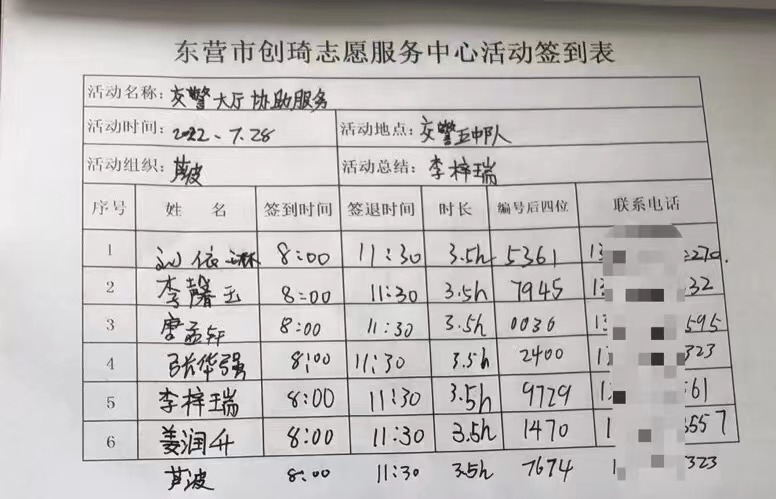 东营市创琦志愿服务中心活动签到表
活动名称: 交警大厅协助服务
活动时间: 2022、7.28 活动地点: 交警五中队
活动组织: 芦波 活动总结: 李梓瑞
序号 姓 名 签到时间 签退时间 时长 编号后四位 联系电话
1 刘依琳 8:00 11:30 3.5h 5361 13 2270.
2 李馨玉 8:00 11:30 3.5h 7945 13 32
3 唐孟轩 8:00 11:30 3.5h 0036 13 595
4 张华强 8:00 11:30 3.5h 2400 1 323
5 李梓瑞 8:00 11:30 3.5h 9729 1 61
6 姜润升 8:00 11:30 3.5h 1470 1 3557
芦波 8:00 11:30 3.5h 7674 1 323